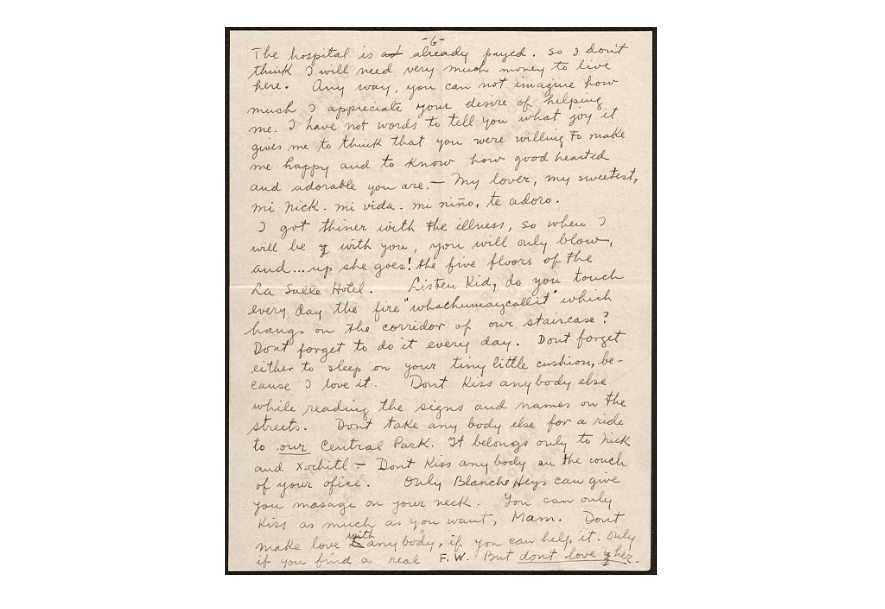 -6-
The hospital is already payed. so I don't
think I will need very much money to live
here. Any way, you can not imagine how
much I appreciate your desire of helping
me. I have not words to tell you what joy it
gives me to think that you were willing to make
me happy and to know how good hearted
and adorable you are.— My lover, my sweetest,
mi Nick. mi vida. mi niño, te adoro.
I got thiner with the illness, so when I
will be with you, you will only blow,
and... up she goes! the five floors of the
La Salle Hotel. Listen Kid, do you touch
every day the fire "whachumaycallit" which
hangs on the corridor of our staircase?
Dont forget to do it every day. Dont forget
either to sleep on your tiny little cushion, be-
cause I love it. Dont Kiss anybody else
while reading the signs and names on the
streets. Dont take any body else for a ride
to our Central Park. It belongs only to Nick
and Xochitl — Dont Kiss any body on the couch
of your ofice. Only Blanche Heys can give
you masage on your neck. You can only
Kiss as much as you want, Mam. Dont
make love with anybody, if you can help it. Only
if you find a real F.W. But dont love her.